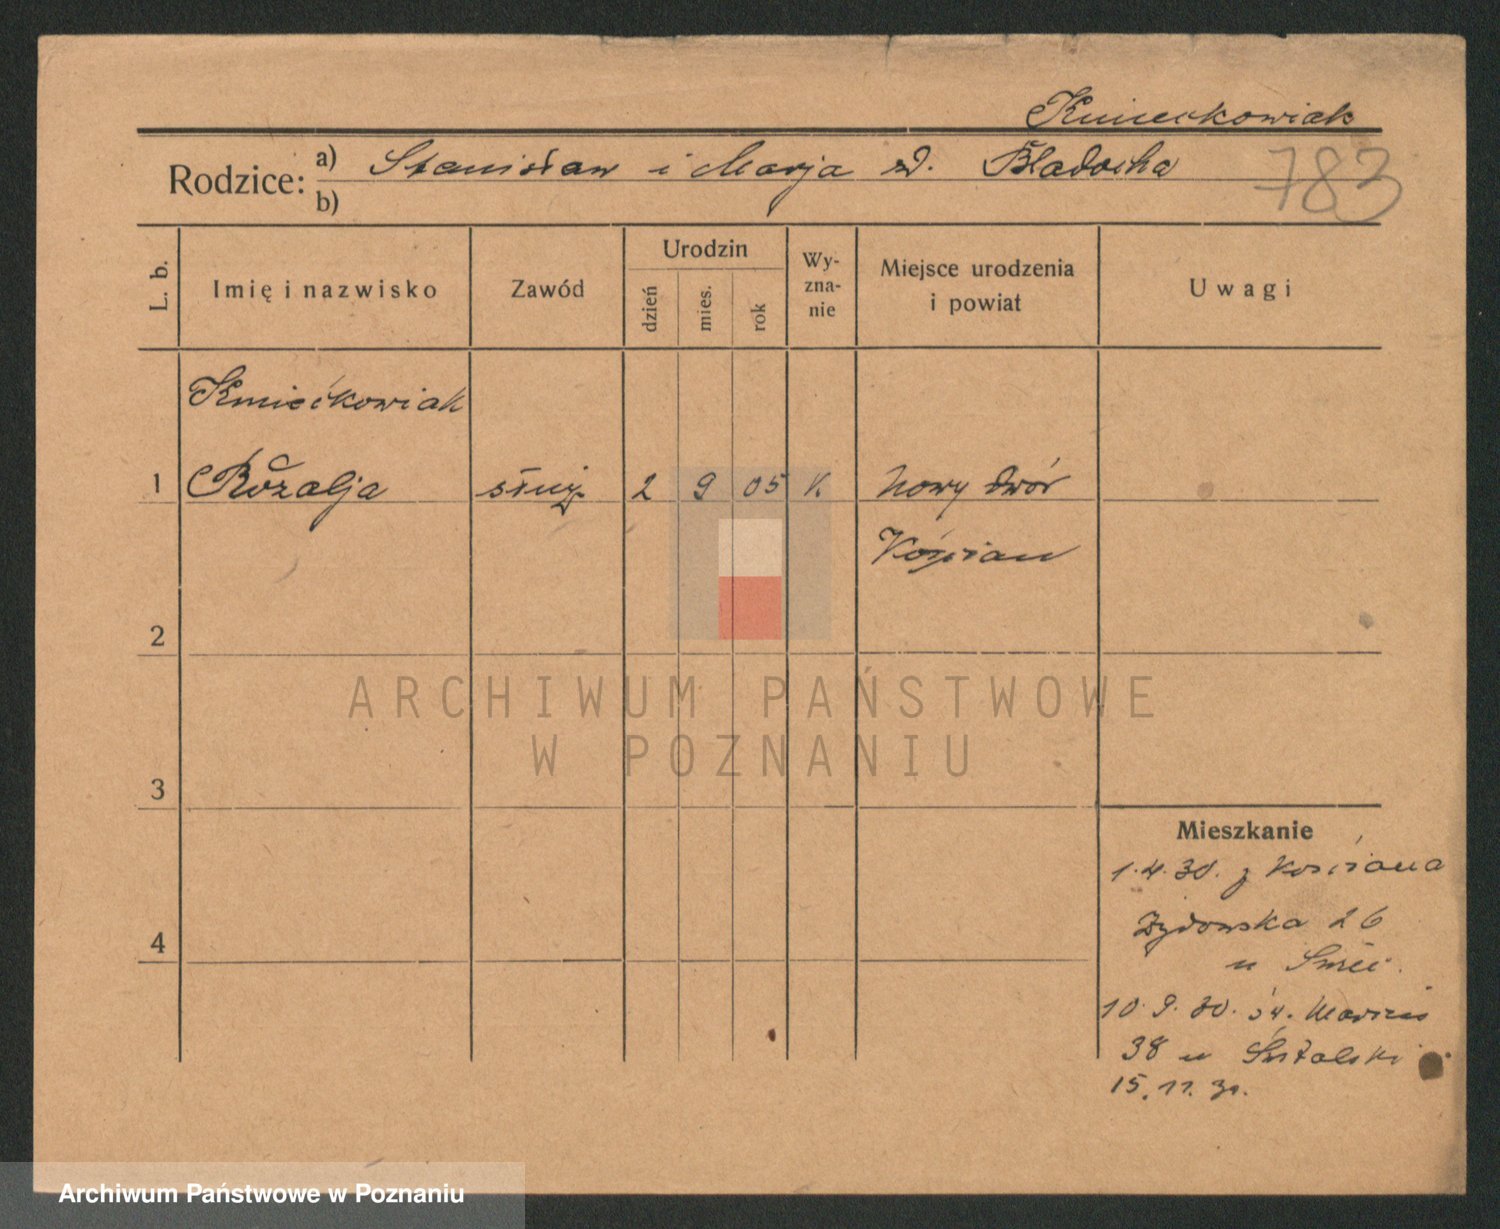 Kmiećkowiak
Rodzice: a) Stanisław i Marja zd. Bladocha
b)
783
L. b.
Imię i nazwisko
Zawód
Urodzin
dzień
mies.
rok
Wy-
zna-
nie
Miejsce urodzenia
i powiat
Uwagi
Kmiećkowiak
1 Rozalja służ. 2 9 05 K. Nowy dwór
Kościan
2
ARCHIWUM PAŃSTWOWE
W POZNANIU
3
Mieszkanie
1.4.30. z Kościana
Żydowska 26
4
10.9.30. św. Marcin
38 u
15.11.30.
Archiwum Państwowe w Poznaniu